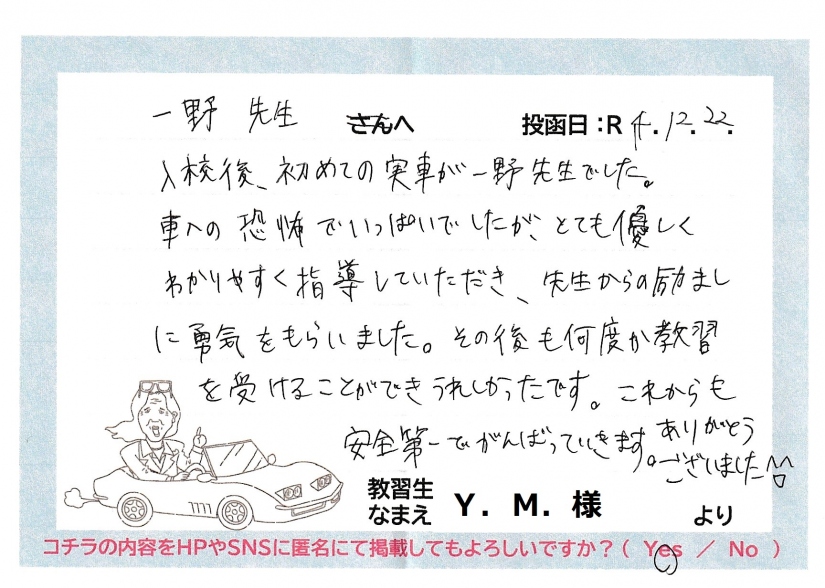 一野 先生 さんへ 投函日：R 4.12.22.
入校後、初めての実車が一野先生でした。
車への恐怖でいっぱいでしたが、とても優しく
わかりやすく指導していただき、先生からの励まし
に勇気をもらいました。その後も何度か教習
を受けることができうれしかったです。これからも
安全第一でがんばっていきます。ありがとう
ございました!!
教習生
なまえ Y．M．様 より
コチラの内容をHPやSNSに匿名にて掲載してもよろしいですか？（ Yes ／ No ）